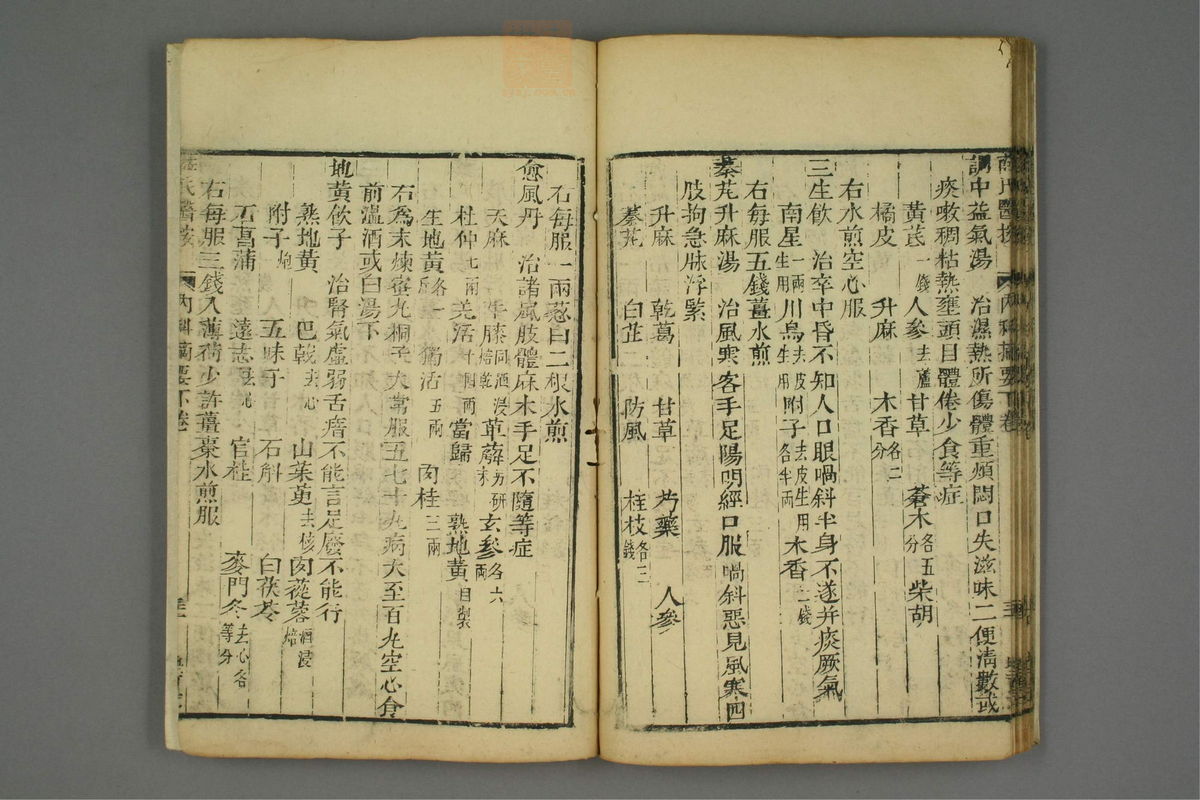 調中益氣湯　治濕熱所傷體重煩悶口失滋味二便清數或
痰嗽稠粘熱壅頭目體倦少食等症
黃芪一錢　人參去蘆　甘草　蒼木各五分　柴胡
橘皮　升麻　木香各二分
右水煎空心服
三生飲　治卒中昏不知人口眼喎斜半身不遂并痰厥氣
南星一兩生用　川烏去皮生用　附子去皮生用各半兩　木香二錢
右每服五錢薑水煎
秦芃升麻湯　治風寒客手足陽明經口眼喎斜惡見風寒四
肢拘急脉浮緊
升麻　乾葛　甘草　芍藥　人參
秦芃　白芷　防風　桂枝各三錢
右每服一兩葱白二根水煎
愈風丹　治諸風肢體麻木手足不隨等症
天麻　牛膝同酒浸焙乾　萆薢另研末　玄參各六兩
杜仲七兩　羌活十四兩　當歸　熟地黃自製
生地黃各一觔　獨活五兩　肉桂三兩
右爲末煉蜜丸桐子大常服五七十丸病大至百丸空心食
前溫酒或白湯下
地黃飲子　治腎氣虛弱舌瘖不能言足廢不能行
熟地黃　巴戟去心　山茱萸去核　肉蓯蓉酒浸焙
附子炮　五味子　石斛　白茯苓
石菖蒲　遠志去心　官桂　麥門冬去心各等分
右每服三錢入薄荷少許薑棗水煎服
薛氏醫按　內科摘要下卷